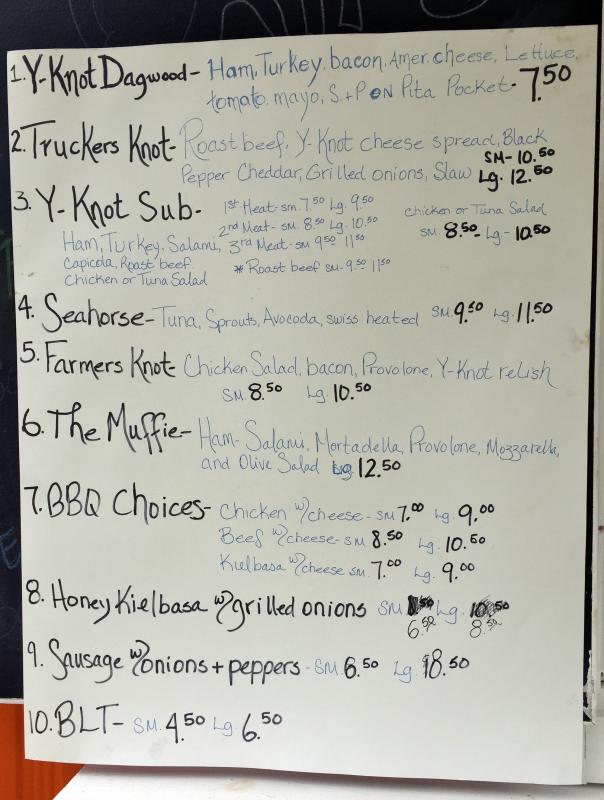 1. Y-Knot Dagwood- Ham, Turkey, bacon, Amer. cheese, Lettuce,
tomato, mayo, S.+P ON Pita Pocket- 7.50
2. Truckers Knot- Roast beef, Y-Knot cheese spread, Black
Pepper Cheddar, Grilled onions, Slaw SM- 10.50 Lg. 12.50
3. Y-Knot Sub- 1st Meat- sm. 7.50 Lg. 9.50
2nd Meat- sm. 8.50 Lg. 10.50
chicken or Tuna Salad
Ham, Turkey, Salami, 3rd Meat- sm 9.50 11.50
SM. 8.50- Lg- 10.50
Capicola, Roast beef
* Roast beef sm- 9.50 11.50
Chicken or Tuna Salad
4. Seahorse- Tuna, Sprouts, Avocoda, swiss heated SM. 9.50 Lg. 11.50
5. Farmers Knot- Chicken Salad, bacon, Provolone, Y-Knot relish
SM. 8.50 Lg. 10.50
6. The Muffie- Ham- Salami, Mortadella, Provolone, Mozzarella,
and Olive Salad Lg 12.50
7. BBQ Choices- Chicken w/cheese- SM 7.00 Lg. 9.00
Beef w/cheese- SM 8.50 Lg. 10.50
Kielbasa w/cheese SM. 7.00 Lg. 9.00
8. Honey Kielbasa w/grilled onions SM Lg.
6.50 8.50
9. Sausage w/onions + peppers- SM. 6.50 Lg. 8.50
10. BLT- SM. 4.50 Lg. 6.50